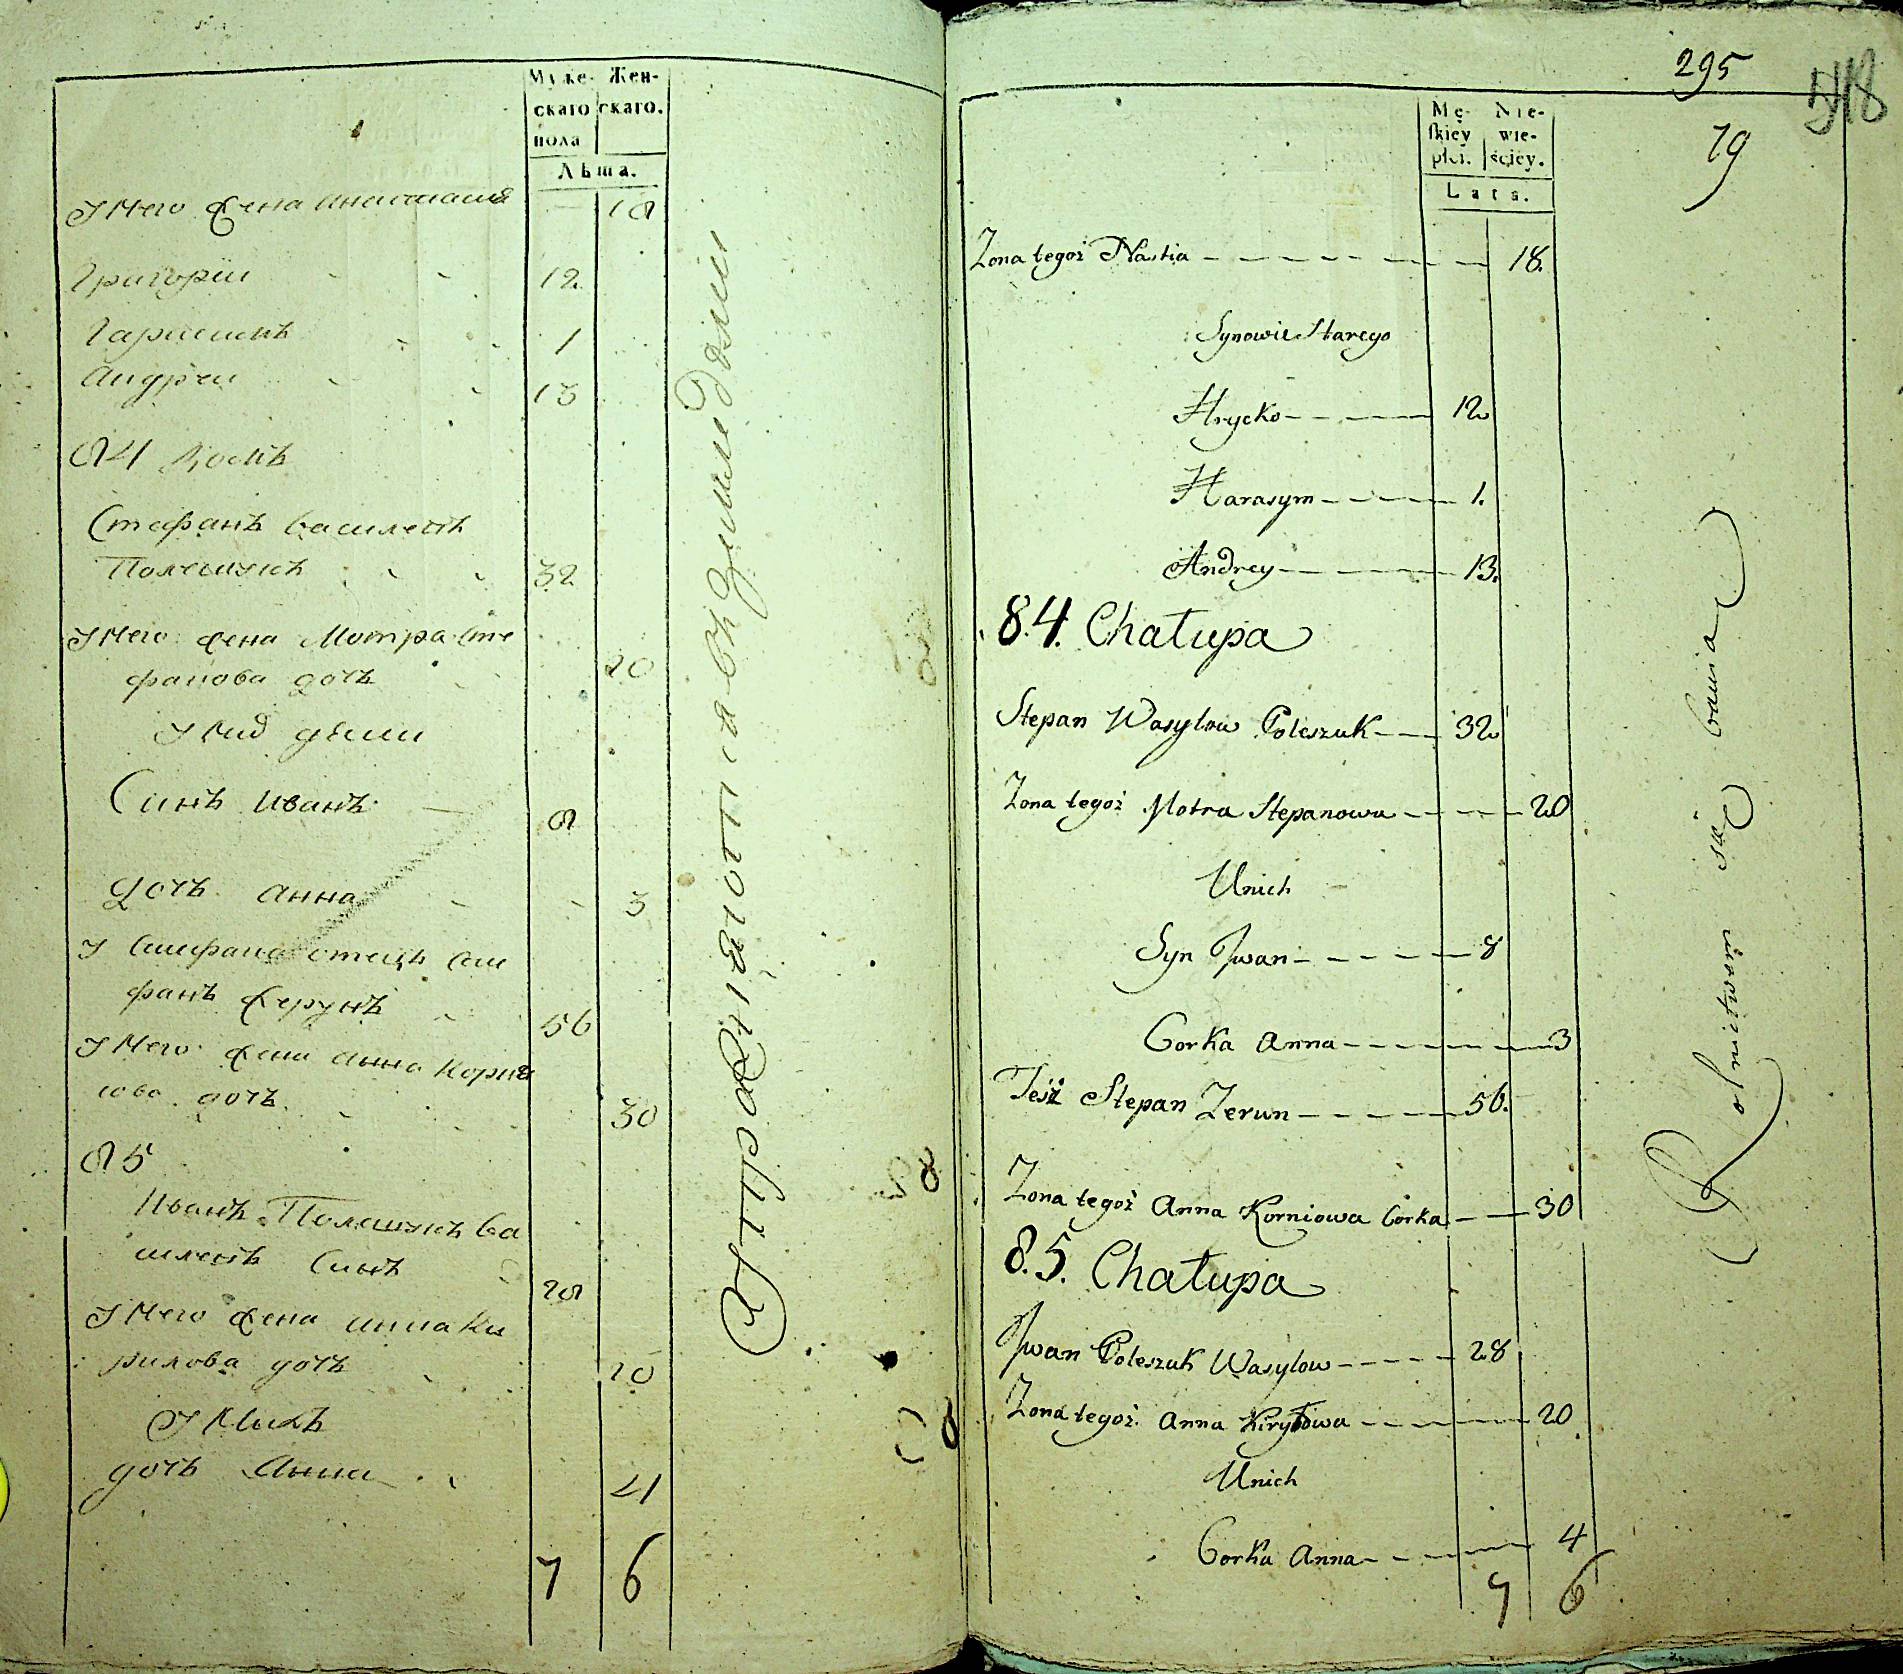 Муже- Жен-
скаго скаго.
пола
Лѣта.
У него жена Анастасия 18
Григорiи 12
Гарасимъ 1
Андреи 13
84 домъ
Стефанъ Василевъ
Полешукъ 32
У него жена Мотра Сте
фанова дочь 20
У них дѣти
Синъ Иванъ 8
Дочь Анна 3
У Стефана отецъ Сте
фанъ Жерунъ 56
У него жена Анна Корнѣ
iова дочь 30
85
Иванъ Полешукъ Ва
силевъ Синъ 28
У него жена Анна Ки
рилова дочь 20
У нихъ
дочь Анна 4
7 6
295
79
Mę- Nie-
skiey wie-
płci. ściey.
Lata.
Zona tegoż Nastia 18.
Synowie Starego
Hrycko 12
Harasym 1.
Andrey 13.
84. Chałupa
Stepan Wasylow Poleszuk 32
Zona tegoż Motra Stepanowa 20
Unich
Syn Jwan 8
Corka Anna 3
Teść Stepan Zerun 56.
Zona tegoż Anna Korniowa Corka 30
85. Chałupa
Jwan Poleszuk Wasylow 28
Zona tegoż Anna Kiryłowa 20
Unich
Corka Anna 4
7 6
Rolnictwem się bawia